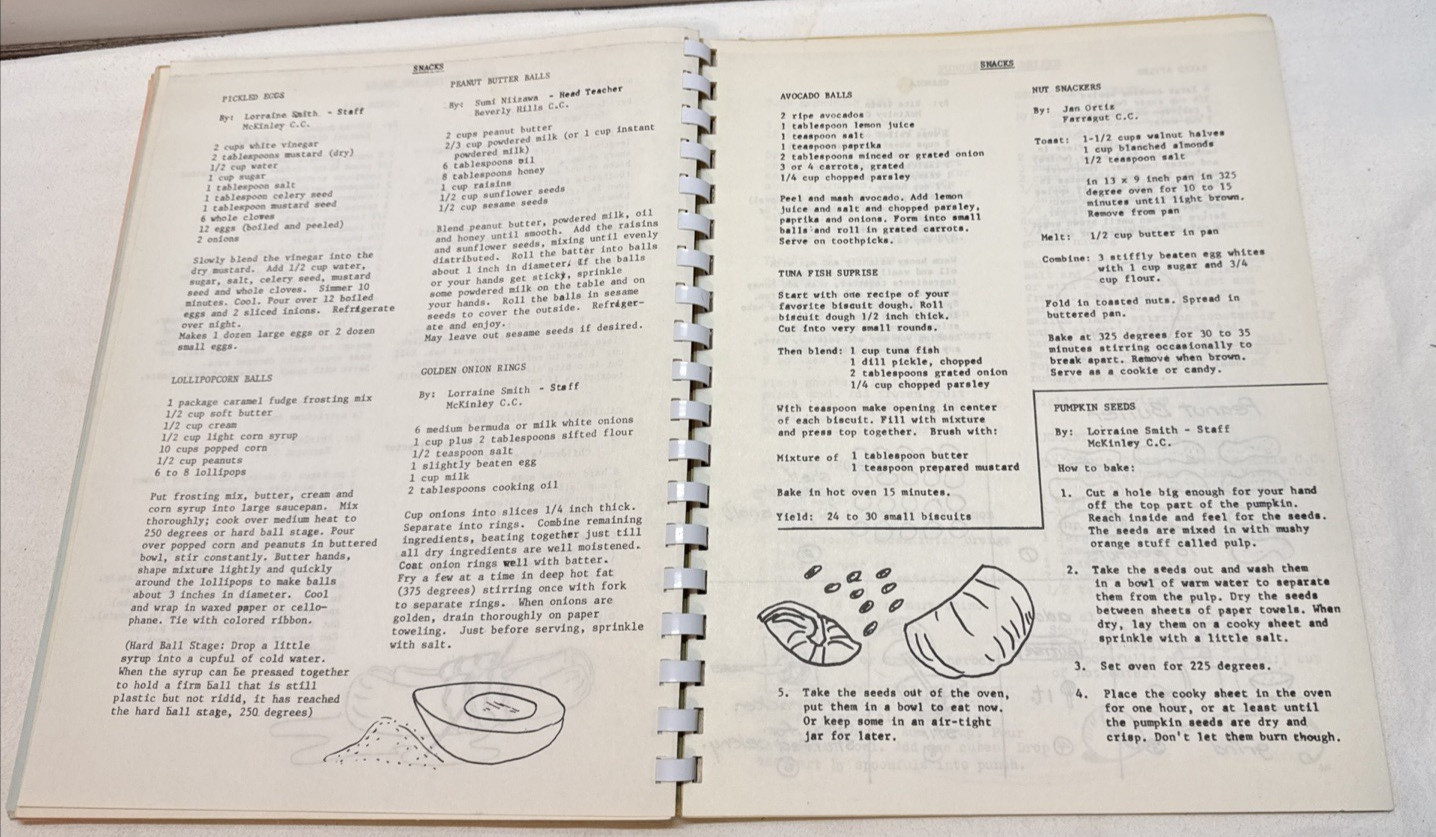 SNACKS
PICKLED EGGS
By: Lorraine Smith - Staff
McKinley C.C.
2 cups white vinegar
2 tablespoons mustard (dry)
1/2 cup water
1 cup sugar
1 tablespoon salt
1 tablespoon celery seed
1 tablespoon mustard seed
6 whole cloves
12 eggs (boiled and peeled)
2 onions
Slowly blend the vinegar into the
dry mustard. Add 1/2 cup water,
sugar, salt, celery seed, mustard
seed and whole cloves. Simmer 10
minutes. Cool. Pour over 12 boiled
eggs and 2 sliced inions. Refrigerate
over night.
Makes 1 dozen large eggs or 2 dozen
small eggs.
LOLLIPOPCORN BALLS
1 package caramel fudge frosting mix
1/2 cup soft butter
1/2 cup cream
1/2 cup light corn syrup
10 cups popped corn
1/2 cup peanuts
6 to 8 lollipops
Put frosting mix, butter, cream and
corn syrup into large saucepan. Mix
thoroughly; cook over medium heat to
250 degrees or hard ball stage. Pour
over popped corn and peanuts in buttered
bowl, stir constantly. Butter hands,
shape mixture lightly and quickly
around the lollipops to make balls
about 3 inches in diameter. Cool
and wrap in waxed paper or cello-
phane. Tie with colored ribbon.
(Hard Ball Stage: Drop a little
syrup into a cupful of cold water.
When the syrup can be pressed together
to hold a firm ball that is still
plastic but not ridid, it has reached
the hard ball stage, 250 degrees)
PEANUT BUTTER BALLS
By: Sumi Niizawa - Head Teacher
Beverly Hills C.C.
2 cups peanut butter
2/3 cup powdered milk (or 1 cup instant
powdered milk)
6 tablespoons oil
8 tablespoons honey
1 cup raisins
1/2 cup sunflower seeds
1/2 cup sesame seeds
Blend peanut butter, powdered milk, oil
and honey until smooth. Add the raisins
and sunflower seeds, mixing until evenly
distributed. Roll the batter into balls
about 1 inch in diameter. If the balls
or your hands get sticky, sprinkle
some powdered milk on the table and on
your hands. Roll the balls in sesame
seeds to cover the outside. Refriger-
ate and enjoy.
May leave out sesame seeds if desired.
GOLDEN ONION RINGS
By: Lorraine Smith - Staff
McKinley C.C.
6 medium bermuda or milk white onions
1 cup plus 2 tablespoons sifted flour
1/2 teaspoon salt
1 slightly beaten egg
1 cup milk
2 tablespoons cooking oil
Cup onions into slices 1/4 inch thick.
Separate into rings. Combine remaining
ingredients, beating together just till
all dry ingredients are well moistened.
Coat onion rings well with batter.
Fry a few at a time in deep hot fat
(375 degrees) stirring once with fork
to separate rings. When onions are
golden, drain thoroughly on paper
toweling. Just before serving, sprinkle
with salt.
SNACKS
AVOCADO BALLS
2 ripe avocados
1 tablespoon lemon juice
1 teaspoon salt
1 teaspoon paprika
2 tablespoons minced or grated onion
3 or 4 carrots, grated
1/4 cup chopped parsley
Peel and mash avocado. Add lemon
juice and salt and chopped parsley,
paprika and onions. Form into small
balls and roll in grated carrots.
Serve on toothpicks.
TUNA FISH SUPRISE
Start with one recipe of your
favorite biscuit dough. Roll
biscuit dough 1/2 inch thick.
Cut into very small rounds.
Then blend: 1 cup tuna fish
1 dill pickle, chopped
2 tablespoons grated onion
1/4 cup chopped parsley
With teaspoon make opening in center
of each biscuit. Fill with mixture
and press top together. Brush with:
Mixture of 1 tablespoon butter
1 teaspoon prepared mustard
Bake in hot oven 15 minutes.
Yield: 24 to 30 small biscuits
NUT SNACKERS
By: Jan Ortiz
Farragut C.C.
Toast: 1-1/2 cups walnut halves
1 cup blanched almonds
1/2 teaspoon salt
in 13 x 9 inch pan in 325
degree oven for 10 to 15
minutes until light brown.
Remove from pan
Melt: 1/2 cup butter in pan
Combine: 3 stiffly beaten egg whites
with 1 cup sugar and 3/4
cup flour.
Fold in toasted nuts. Spread in
buttered pan.
Bake at 325 degrees for 30 to 35
minutes stirring occasionally to
break apart. Remove when brown.
Serve as a cookie or candy.
PUMPKIN SEEDS
By: Lorraine Smith - Staff
McKinley C.C.
How to bake:
1. Cut a hole big enough for your hand
off the top part of the pumpkin.
Reach inside and feel for the seeds.
The seeds are mixed in with mushy
orange stuff called pulp.
2. Take the seeds out and wash them
in a bowl of warm water to separate
them from the pulp. Dry the seeds
between sheets of paper towels. When
dry, lay them on a cooky sheet and
sprinkle with a little salt.
3. Set oven for 225 degrees.
4. Place the cooky sheet in the oven
for one hour, or at least until
the pumpkin seeds are dry and
crisp. Don't let them burn though.
5. Take the seeds out of the oven,
put them in a bowl to eat now.
Or keep some in an air-tight
jar for later.